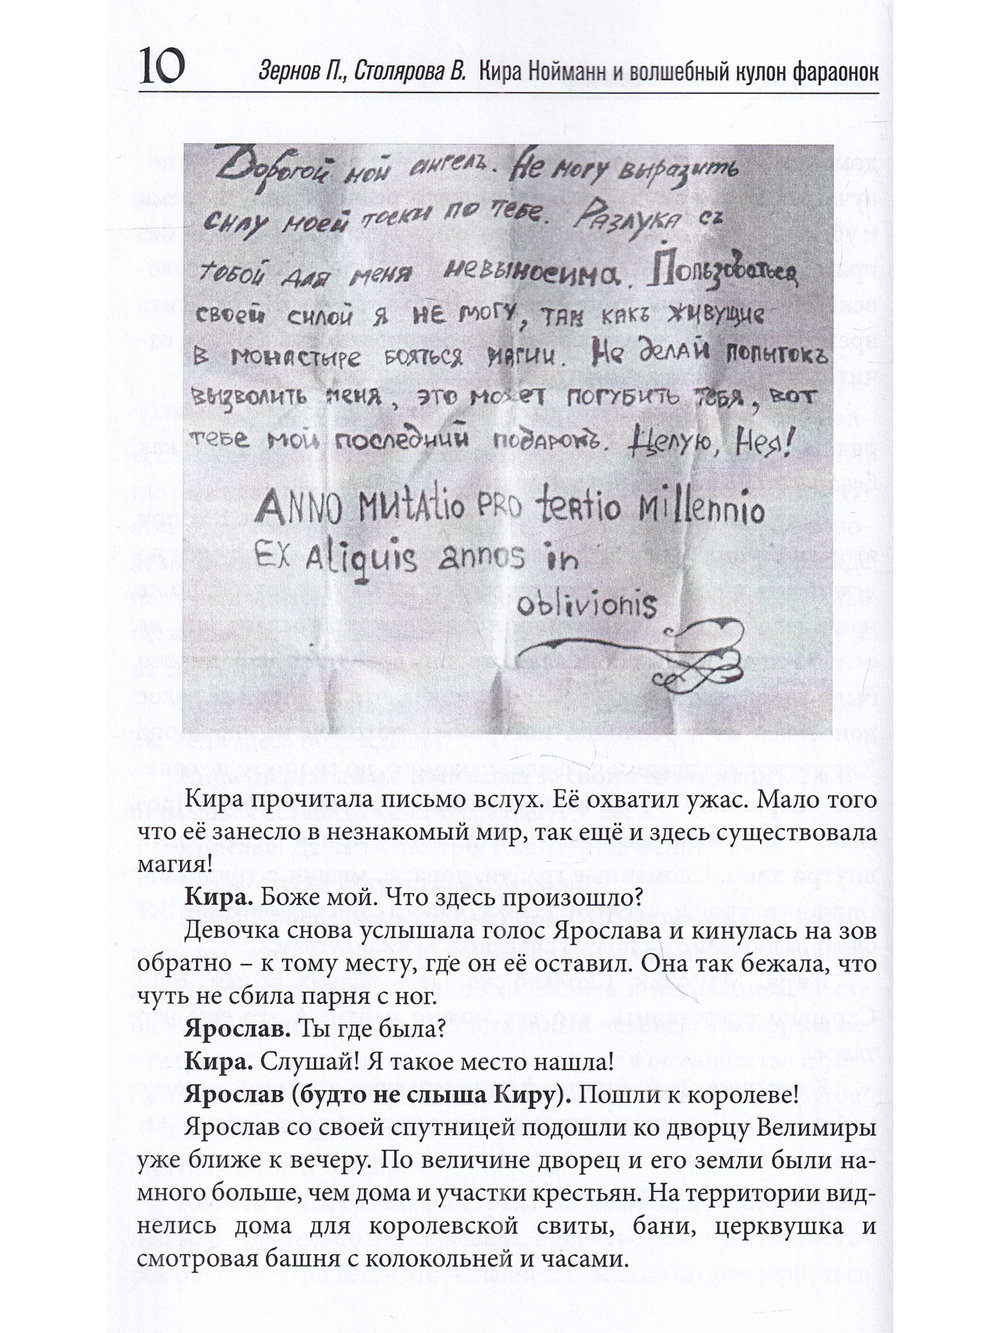 10
Зернов П., Столярова В. Кира Нойманн и волшебный кулон фараонок
Дорогой мой ангелъ. Не могу выразить
силу моей тоски по тебе. Разлука съ
тобой для меня невыносима. Пользоваться
своей силой я не могу, так какъ живущие
в монастыре бояться магии. Не делай попытокъ
вызволить меня, это может погубить тебя, вот
тебе мой последний подарокъ. Целую, Нея!
ANNO MUtAtio PRO teRtio Millennio
EX Aliquis annos in
oblivionis
Кира прочитала письмо вслух. Её охватил ужас. Мало того
что её занесло в незнакомый мир, так ещё и здесь существовала
магия!
Кира. Боже мой. Что здесь произошло?
Девочка снова услышала голос Ярослава и кинулась на зов
обратно – к тому месту, где он её оставил. Она так бежала, что
чуть не сбила парня с ног.
Ярослав. Ты где была?
Кира. Слушай! Я такое место нашла!
Ярослав (будто не слыша Киру). Пошли к королеве!
Ярослав со своей спутницей подошли ко дворцу Велимиры
уже ближе к вечеру. По величине дворец и его земли были на-
много больше, чем дома и участки крестьян. На территории вид-
нелись дома для королевской свиты, бани, церквушка и
смотровая башня с колокольней и часами.